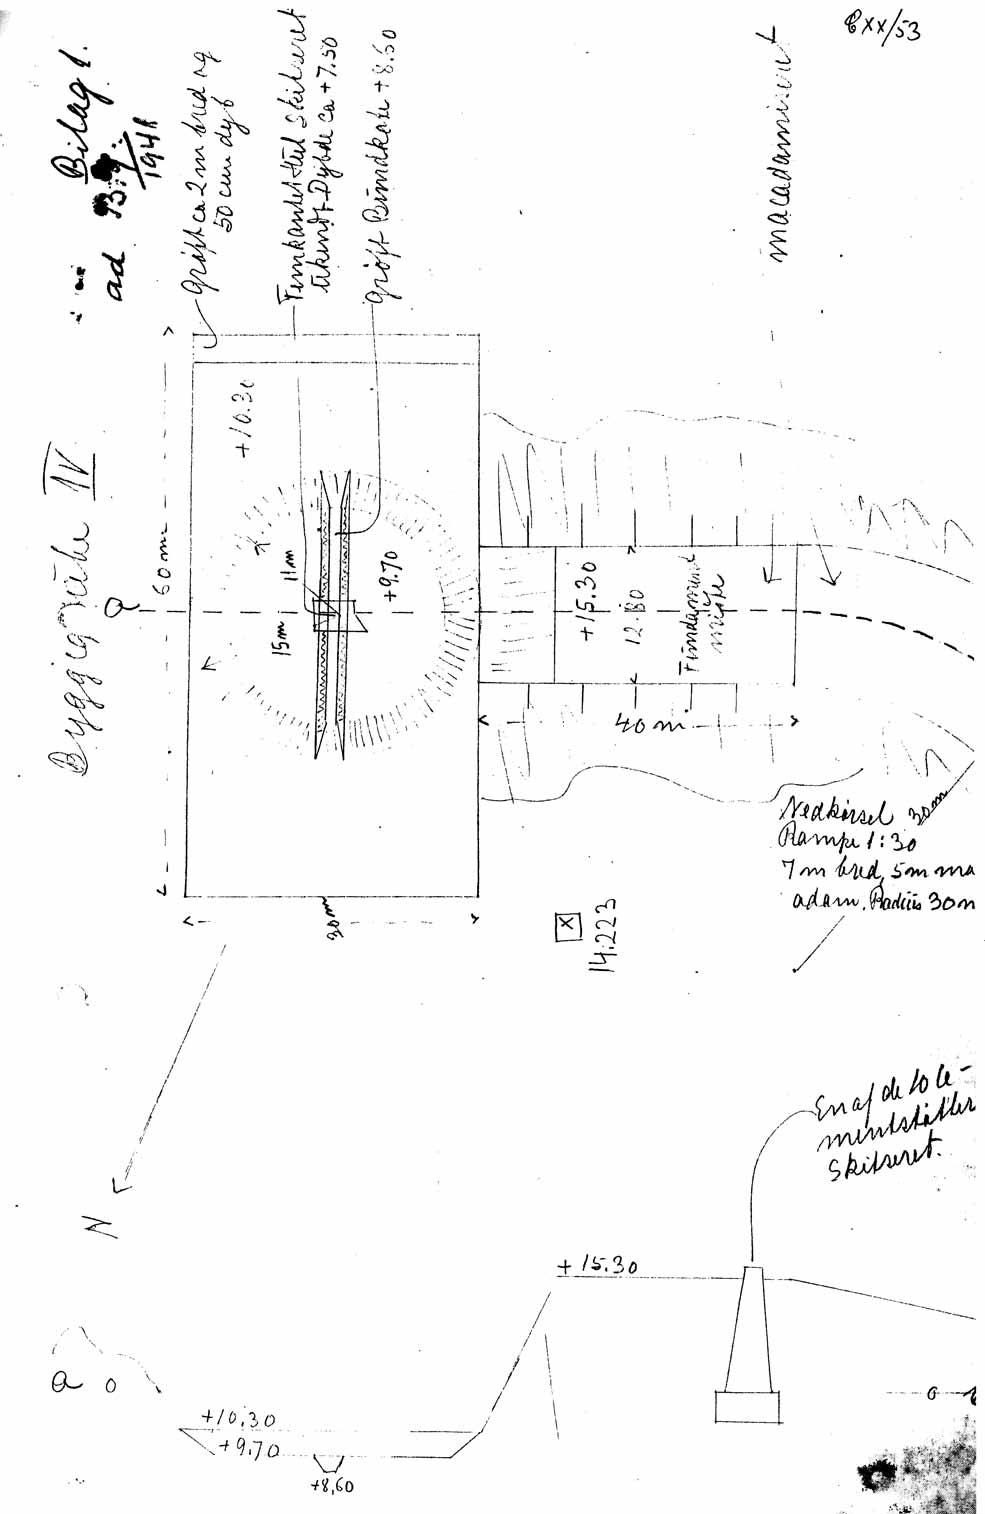 Cxx/53
Bilag 1.
ad
1941
Byggegrube IV
Grøft ca 2 m bred og
50 cm dyb
Firkantet Hul skitseret
ukendt Dybde ca +7.50
grøft Bundkote +8.60
macadamiseret
60 m
+10.30
11m
15m
+9.70
a
+15.30
12.80
Fundament
40 m
30 m
X
14.223
Nedkørsel 30m
Rampe 1:30
7 m bred, 5m ma
adam. Radius 30 m
N
En af de 10 Ce-
mentstøtter
skitseret.
+ 15.30
a
+10.30
+9.70
+8,60